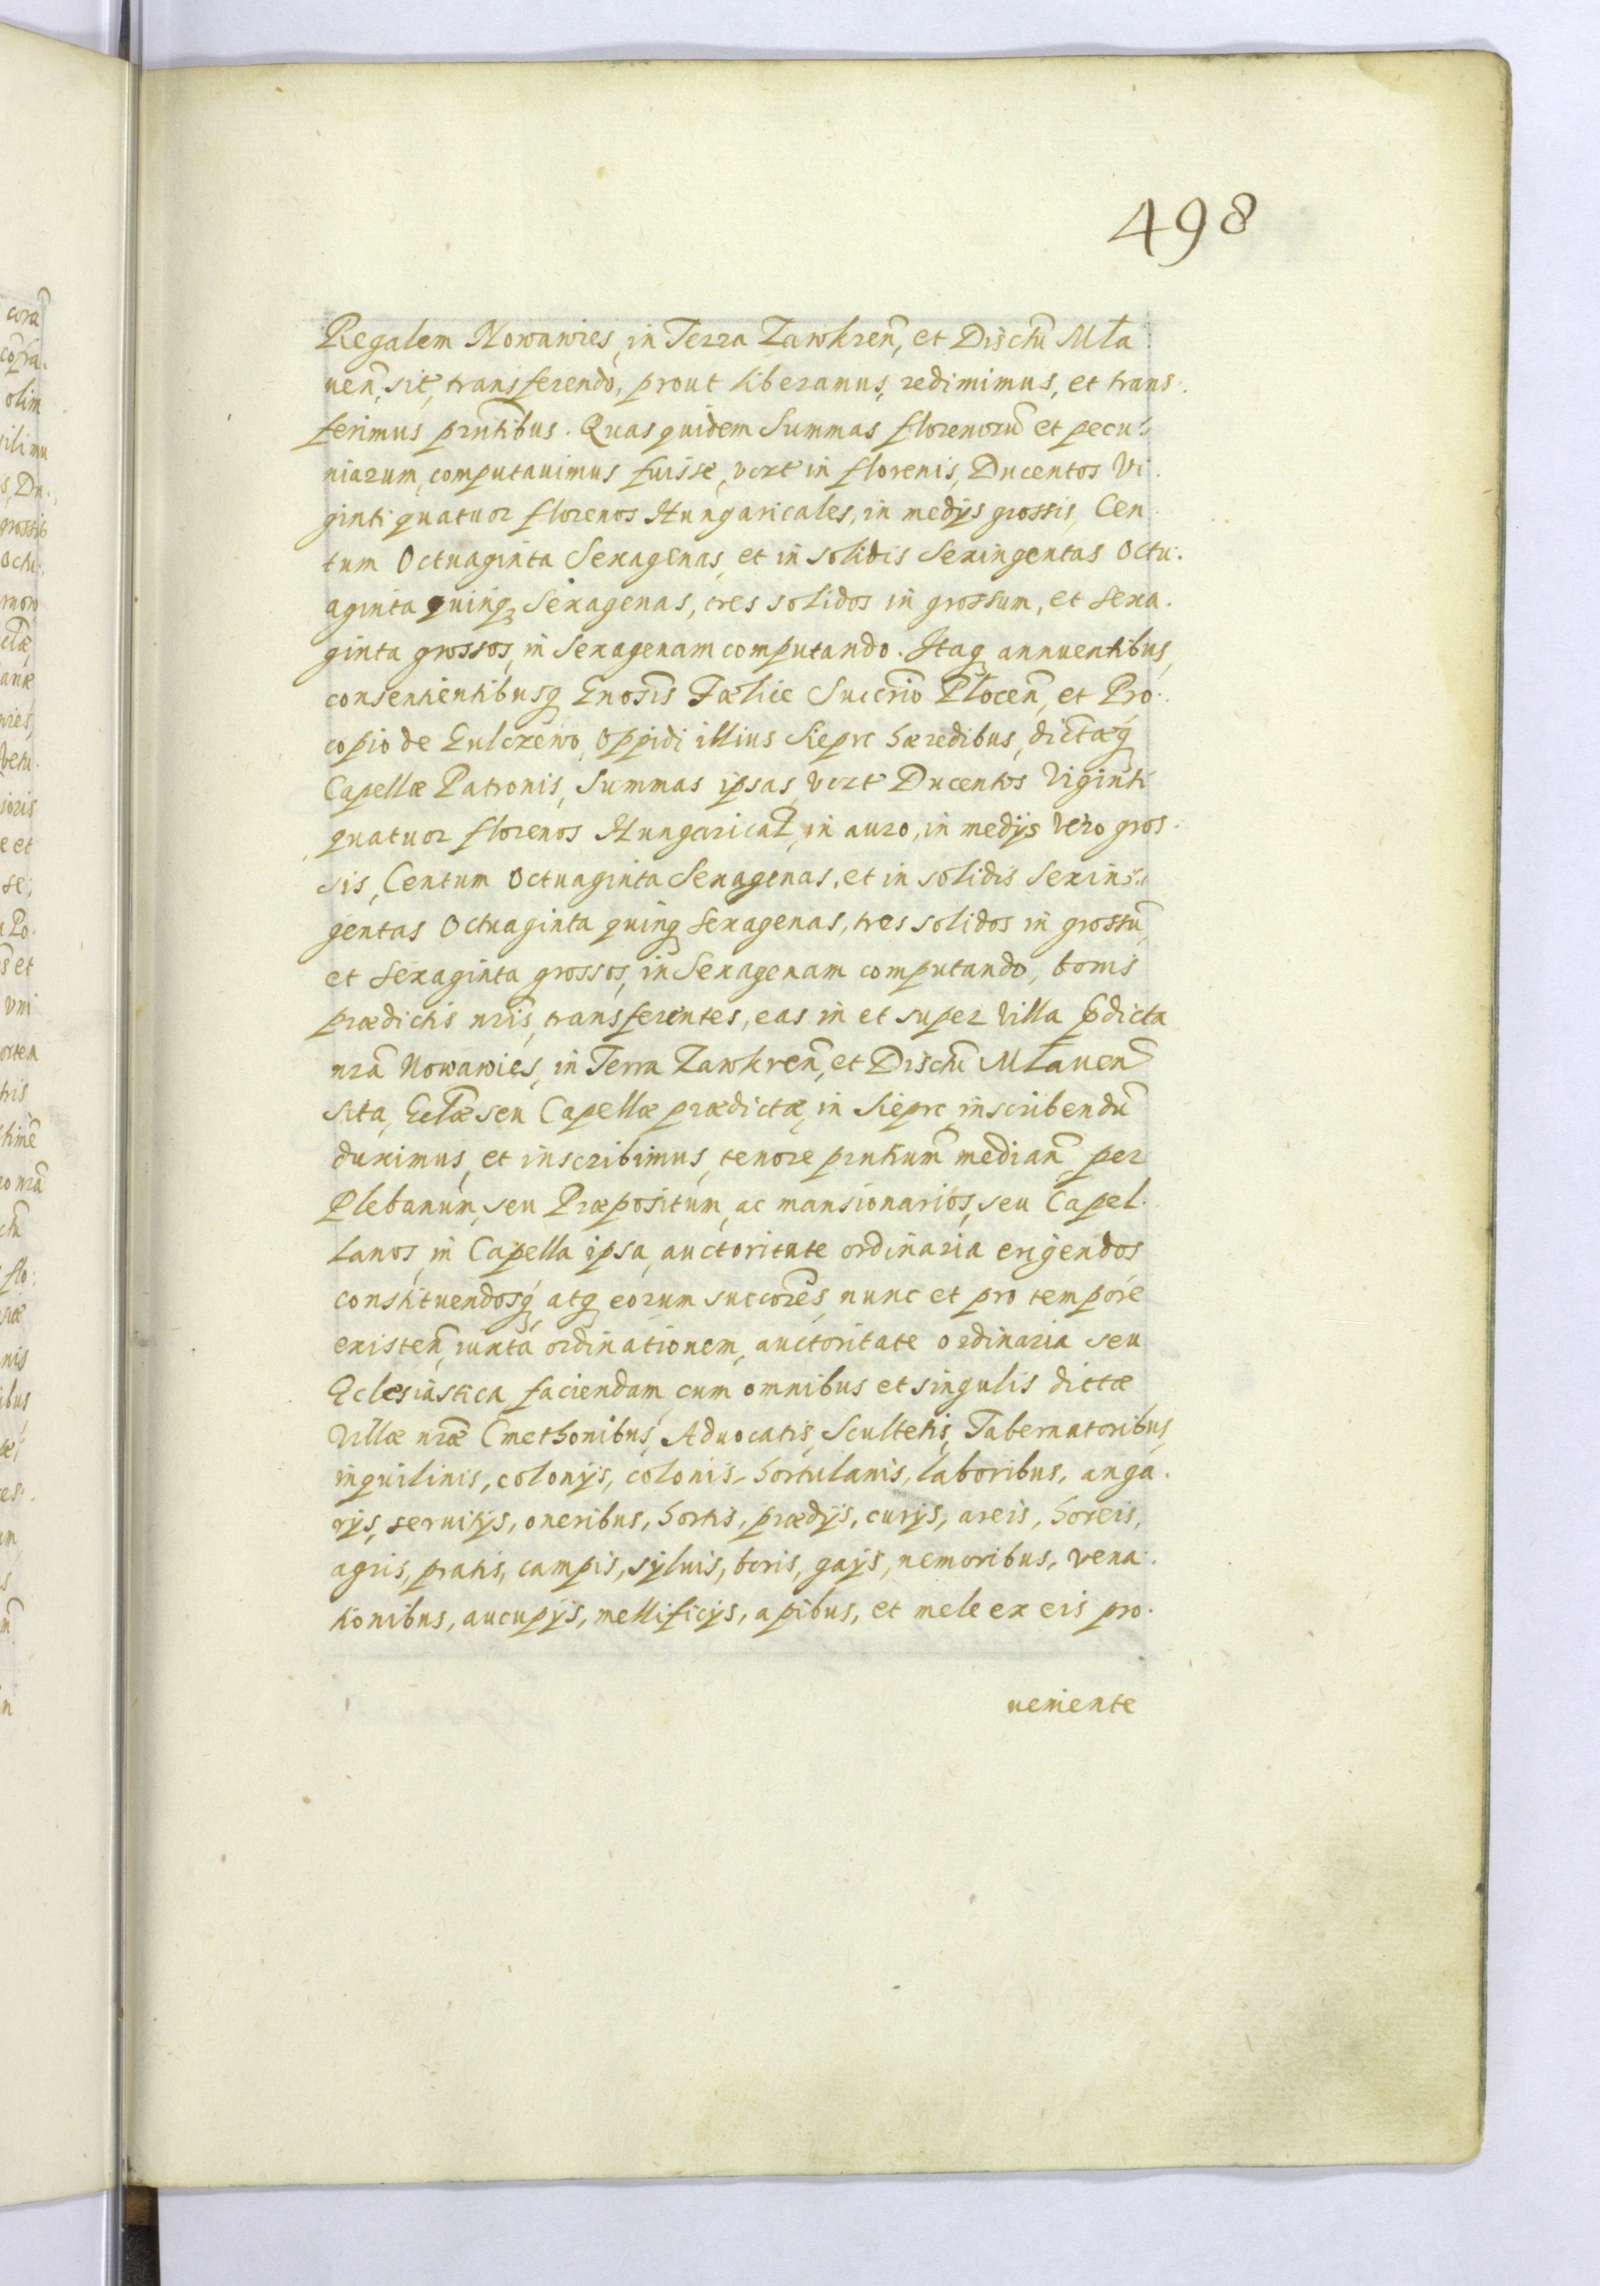 498
Regalem Nowawies, in Terra Zawkren̄, et Disctū Mła
uen̄, sit, transferendo, prout liberamus, redimimus, et trans.
ferimus prn̄tibus. Quas quidem Summas florenorū et pecu:
niarum, computauimus fuisse, vzt in florenis, Ducentos Vi.
ginti quatuor florenos Hungaricales, in medys grossis, Cen
tum Octuaginta Sexagenas, et in solidis Sexingentas Octu.
aginta quinq̨ Sexagenas, tres solidos in grossum, et sexa.
ginta grossos, in Sexagenam computando. Itaq̨ annuentibus,
consentientibusq̨ Gnosis Fælice Succrio Płocen̄, et Pro.
copio de Gulczewo, Oppidi illius Sieprc hæredibus, dictæq̨
Capellæ Patronis, Summas ipsas, vczt Ducentos Viginti
quatuor florenos Hungarical, in auro, in medijs vero gros.
sis, Centum Octuaginta Sexagenas, et in solidis Sexins.
gentas Octuaginta quinq̨ sexagenas, tres solidos in grossū,
et sexaginta grossos, in Sexagenam computando, bonis
prædictis nr̄is, transferentes, eas in et super Villa p̄dicta
nrā Nowawies, in Terra Zawkren̄, et Disctū Mławen̄
sita, Ecłæ seu Capellæ prædictæ, in Sieprc, inscribendū
duximus, et inscribimus, tenore prn̄tium̄ median̄ per
Plebanum, seu Præpositum, ac mansionarios, seu Capel.
lanos, in Capella ipsa, auctoritate ordinaria erigendos
constituendosq̨, atq̨ eorum succores, nunc et pro tempore
existen̄, iuxta ordinationem, auctoritate ordinaria seu
Eclesiastica faciendam, cum omnibus et singulis dictæ
Villæ nr̄æ Cmethonibus, Aduocatis, Scultetis, Tabernatoribus,
inquilinis, colonijs, colonis, hortulanis, laboribus, anga.
rijs, seruitijs, oneribus, hortis, prædijs, curijs, areis, horeis,
agris, pratis, campis, syluis, boris, gays, nemoribus, vena.
tionibus, aucupijs, mellificijs, apibus, et mele ex eis pro.
ueniente